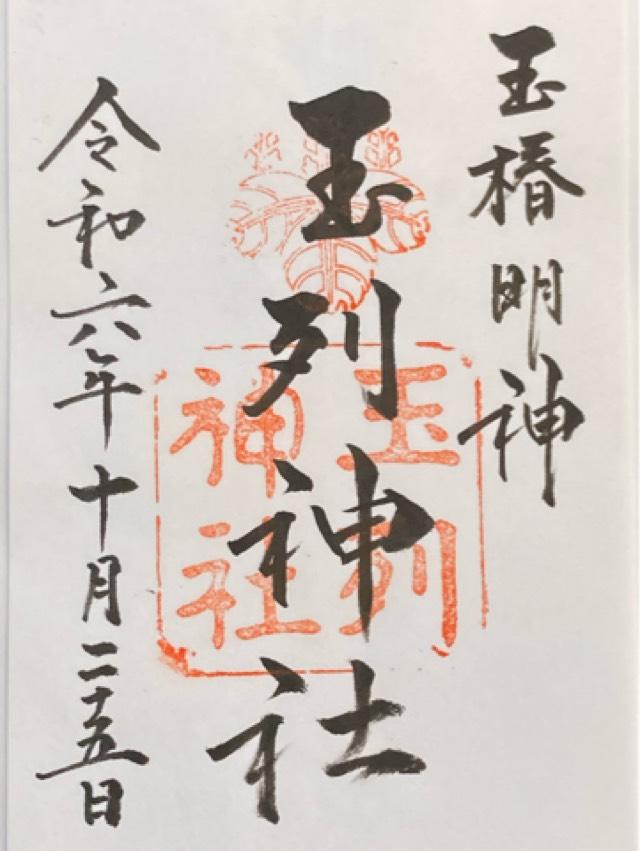 玉椿明神
玉列神社
玉列
神社
令和六年十月二十五日